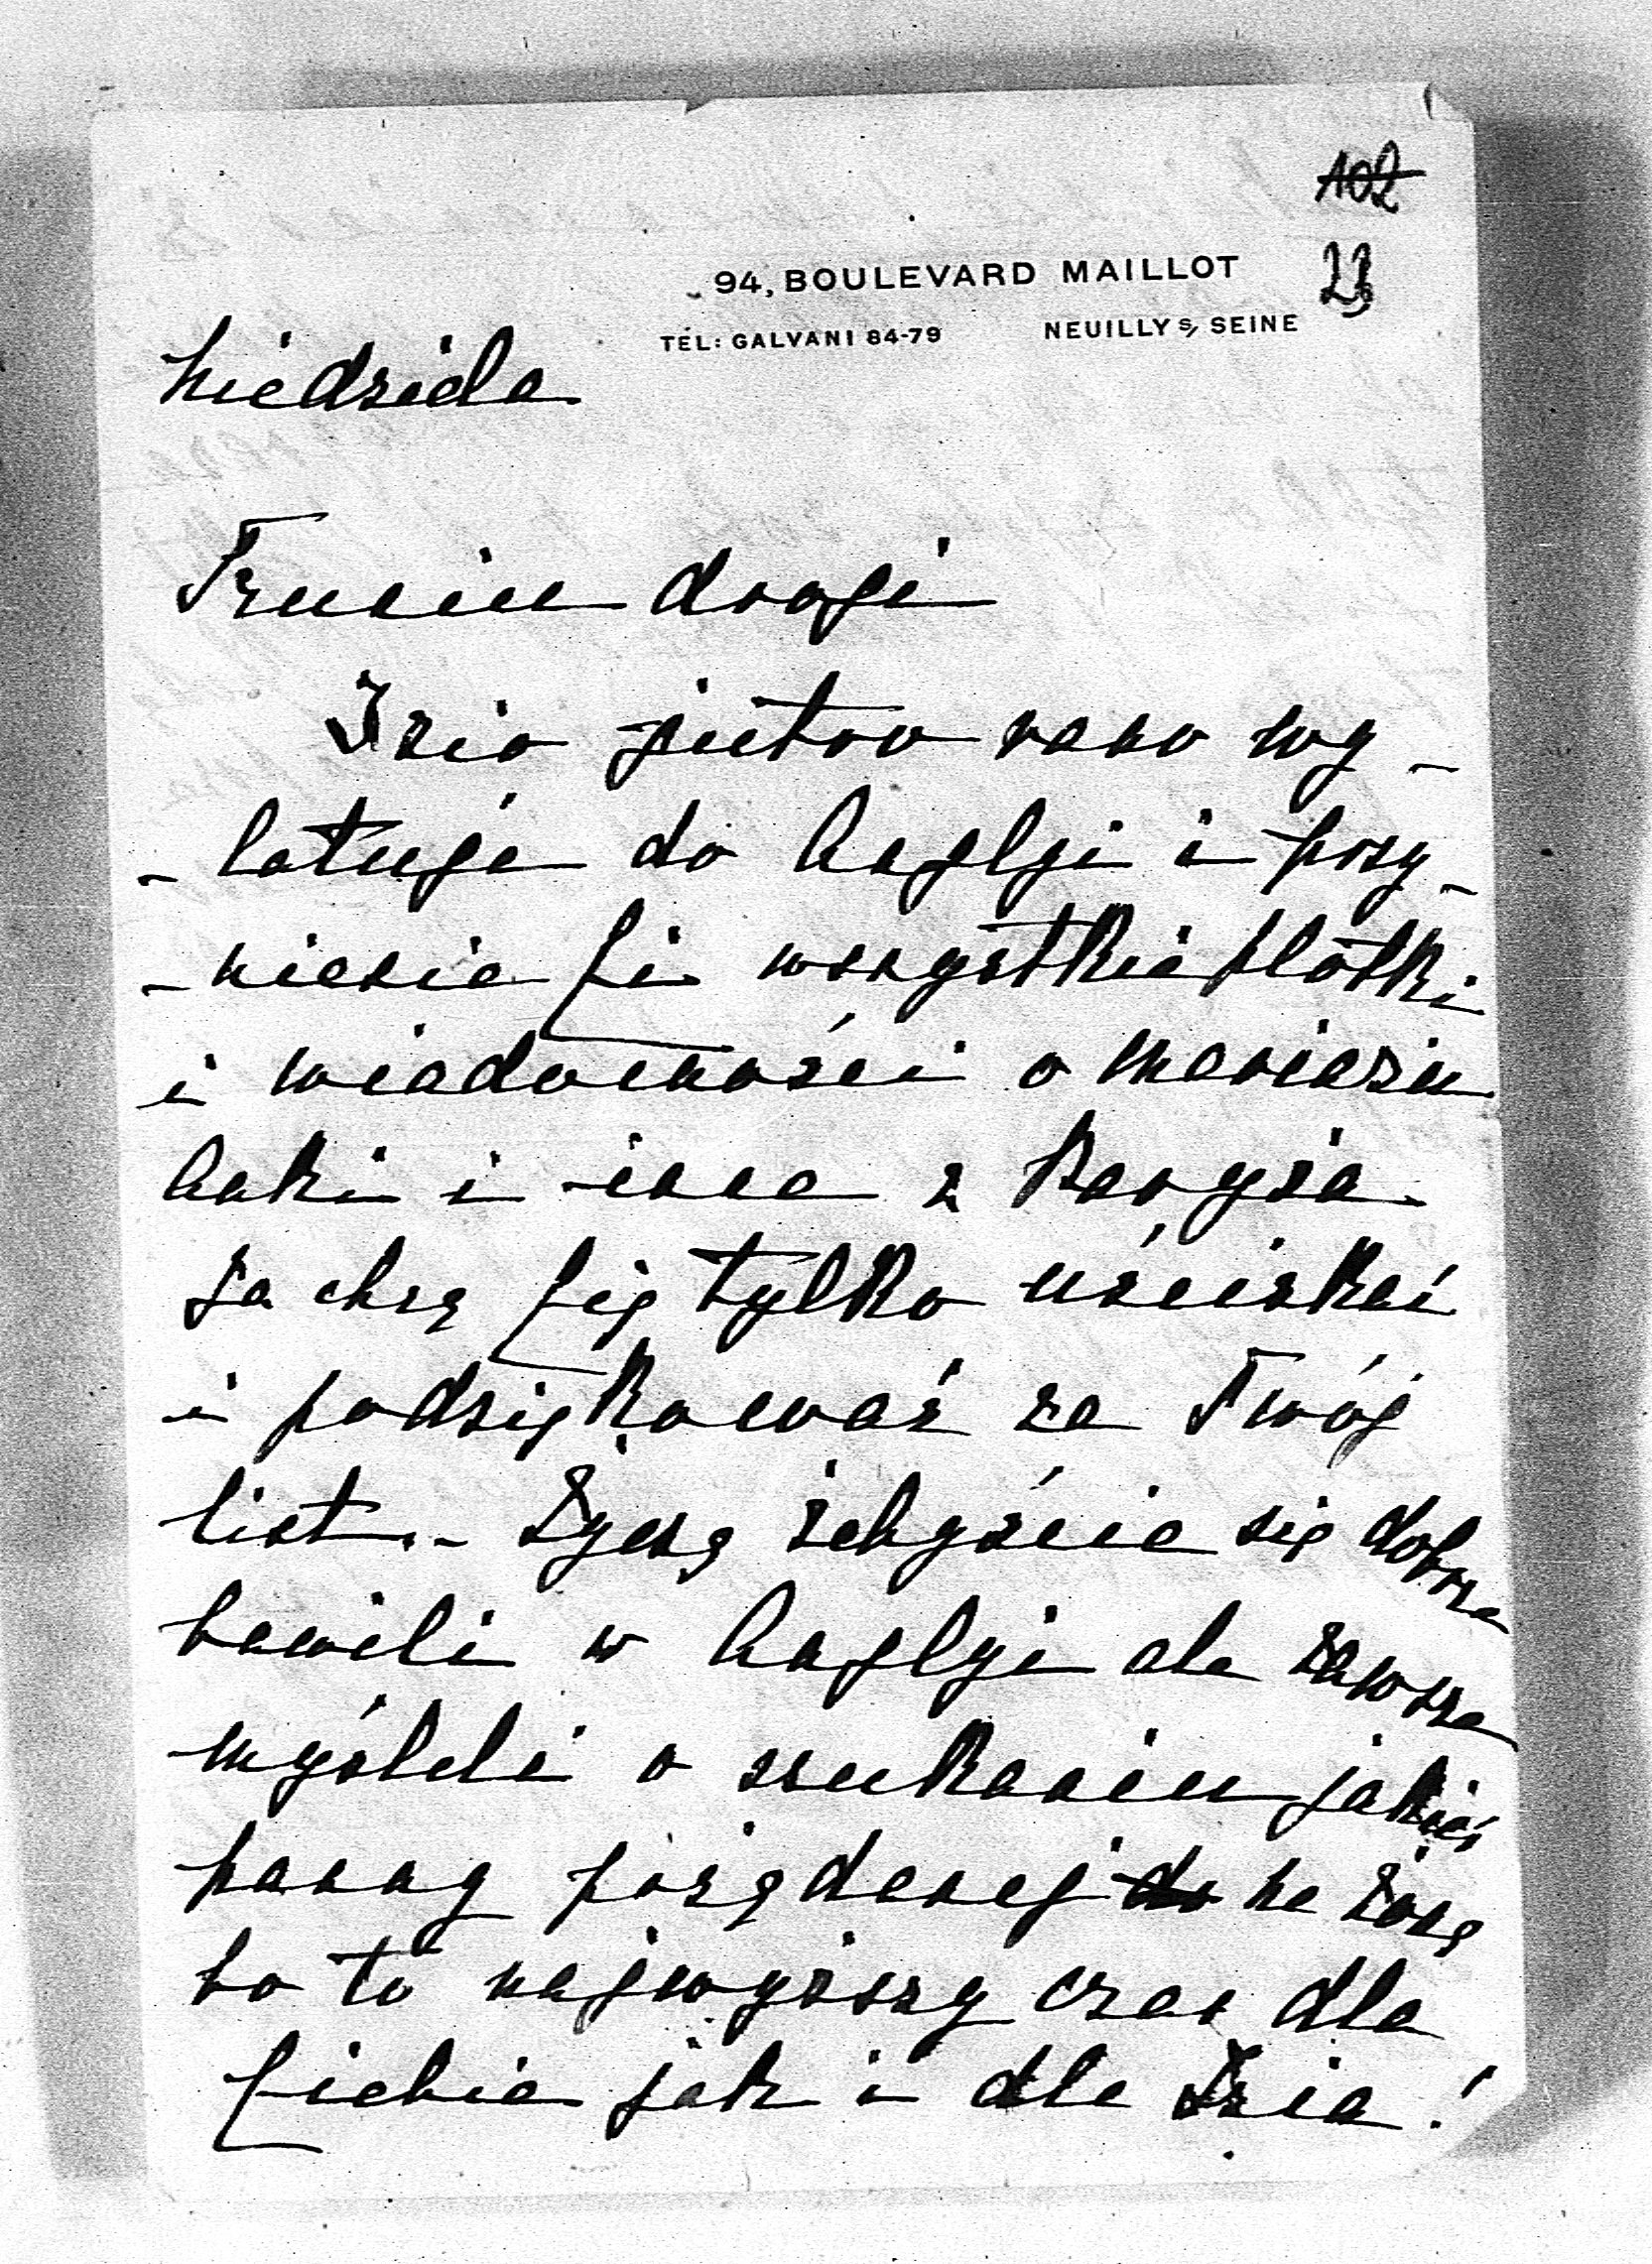 102
23
94, BOULEVARD MAILLOT
TÉL: GALVANI 84-79 NEUILLY S/ SEINE
Niedziela
Truciu drogi
Izio jutro rano wy-
-latuje do Anglji i przy-
-niesie Ci wszystkie plotki
i wiadomości o mariażu
Anki i inne z Paryża
Ja chcę Cię tylko uściskać
i podziękować za Twój
list.- Życzę żebyście się dobrze
bawili w Anglji ale zawsze
myśleli o szukaniu jakiejś
panny porządnej do na żonę
bo to najwyższy czas dla
Ciebie jak i dla Izia!